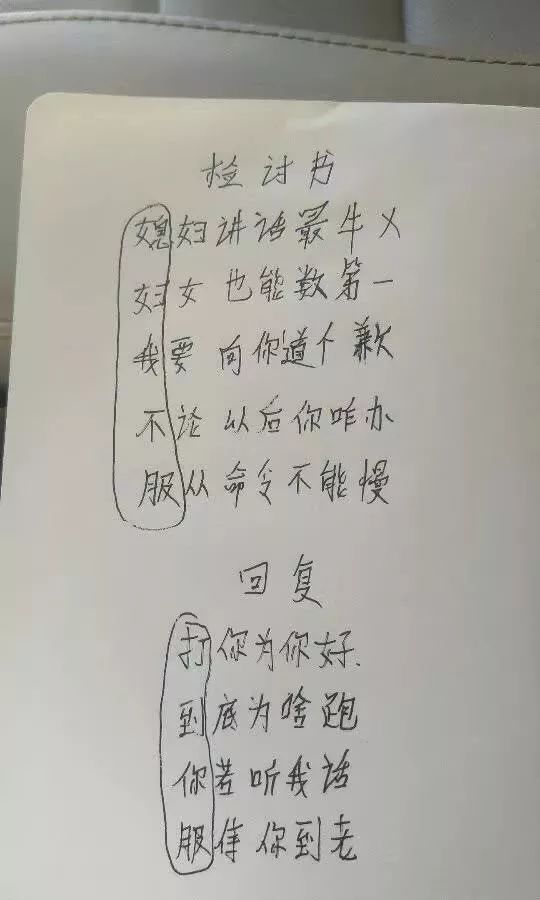 检讨书
媳妇讲话最牛乂
妇女也能数第一
我要向你道个歉
不论以后你咋办
服从命令不能慢
回复
打你为你好.
到底为啥跑
你若听我话
服侍你到老